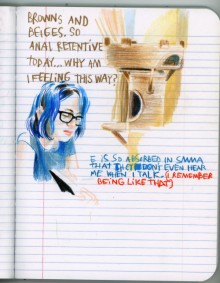 BROWNS AND
BEIGES. SO
ANAL RETENTIVE
TODAY... WHY AM
I FEELING THIS WAY?
E IS SO ABSORBED IN
THAT DON'T EVEN HEAR
ME WHEN I TALK. (I REMEMBER
BEING LIKE THAT)